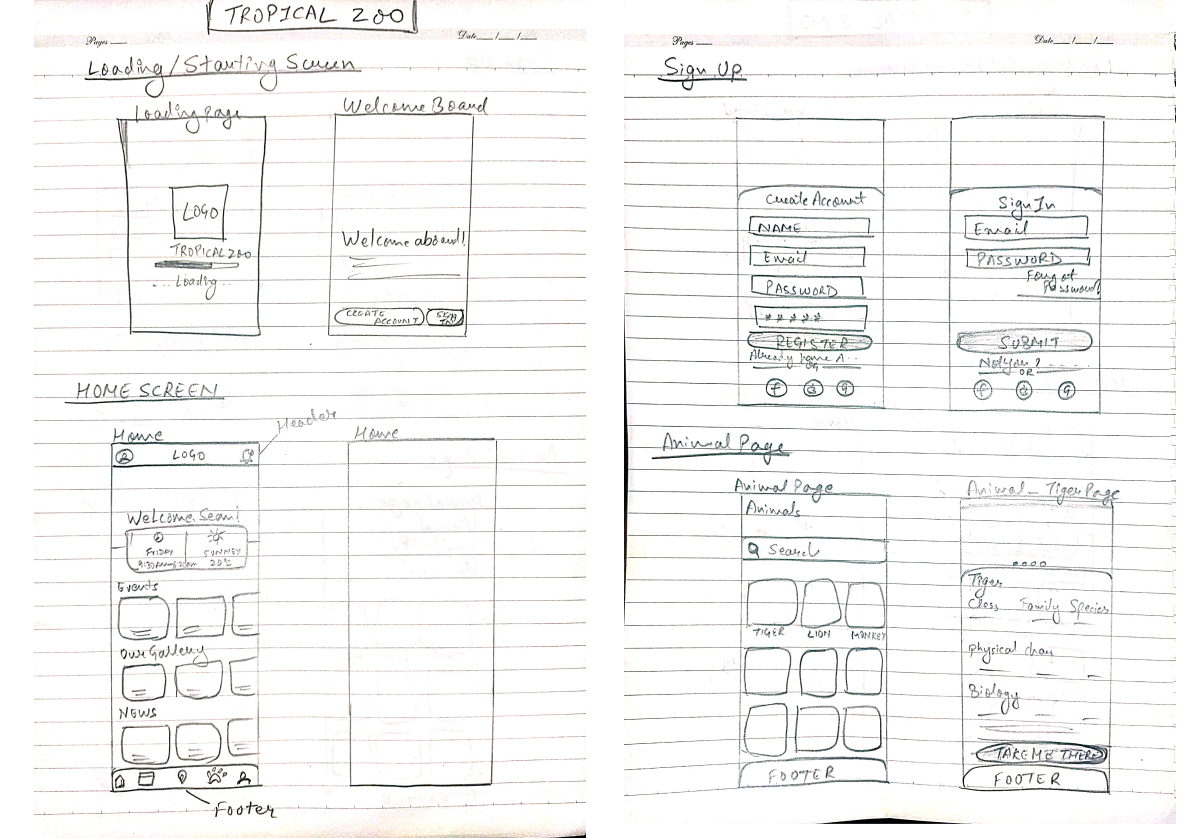 TROPICAL ZOO
Pages
Date / /
Loading/Starting Screen
Loading Page
LOGO
TROPICAL ZOO
... Loading...
Welcome Board
Welcome aboard!
CREATE ACCOUNT
SIGN IN
HOME SCREEN
Home
Header
LOGO
Welcome, Sean!
FRIDAY
SUNNEY
20°C
Events
Our Gallery
NEWS
Footer
Home
Pages
Date / /
Sign Up
Create Account
NAME
Email
PASSWORD
*****
REGISTER
Already have A...
OR
f
G
Sign In
Email
PASSWORD
Forgot
Password?
SUBMIT
Not you?
OR
f
G
Animal Page
Animal Page
Animals
Search
TIGER LION MONKEY
FOOTER
Animal - Tiger Page
Tiger
Class Family Species
physical char
Biology
TAKE ME THERE
FOOTER